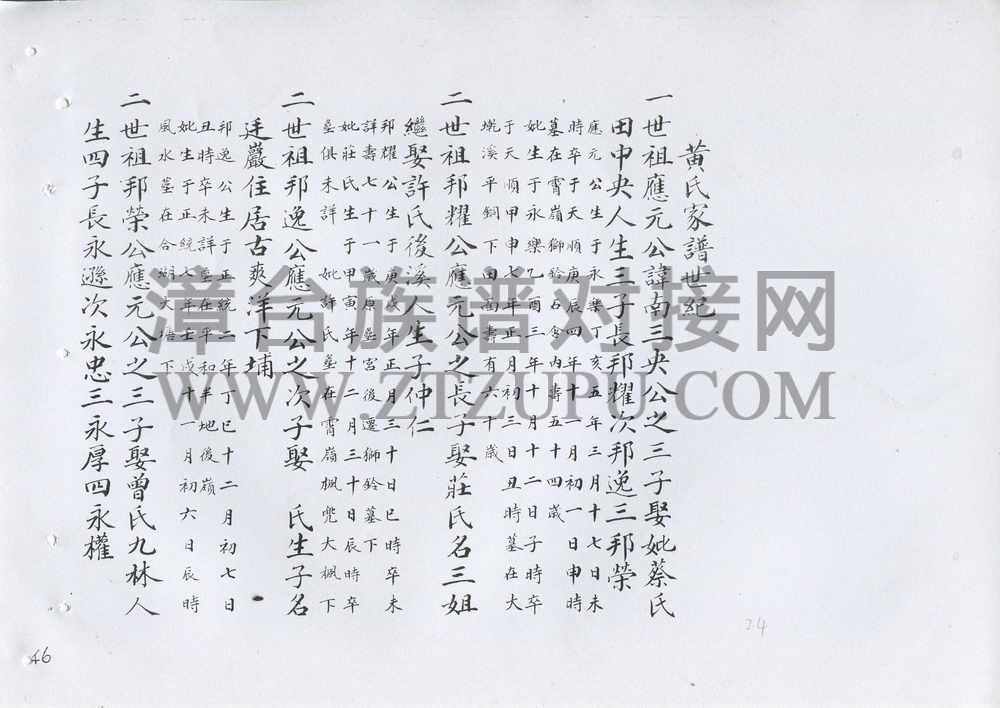 黄氏家譜世紀
一世祖應元公諱南三央公之三子娶妣蔡氏
田中央人生三子長邦耀次邦逸三邦榮
應元公生于永樂丁亥五年三月十七日未
時卒于天順庚辰四年十一月初一日申時
墓在霄嶺獅鈴石倉內壽五十四歲
妣生于永樂乙酉三年十月十二日子時卒
于天順甲申七年正月初三日丑時墓在大
溪平銅下田面壽有六十歲
二世祖邦耀公應元公之長子娶莊氏名三姐
繼娶許氏後溪人生子仲仁
邦耀公生于庚戌年正月三十日巳時卒未
詳壽七十一歲原墓宮後遷獅鈴墓下
妣莊氏生于甲寅年十二月三十日辰時卒
墓俱未詳 妣許氏墓在霄嶺楓兠大楓下
二世祖邦逸公應元公之次子娶 氏生子名
廷嚴住居古爽洋下埔
邦逸公生于正統二年丁巳十二月初七日
丑時卒未詳墓在平和半地後嶺
妣生于正統七年壬戌十一月初六日辰時
風水墓在合湖大塘下
二世祖邦榮公應元公之三子娶曾氏九林人
生四子長永遜次永忠三永厚四永權
漳台族谱对接网
WWW.ZTZUPU.COM
24
46